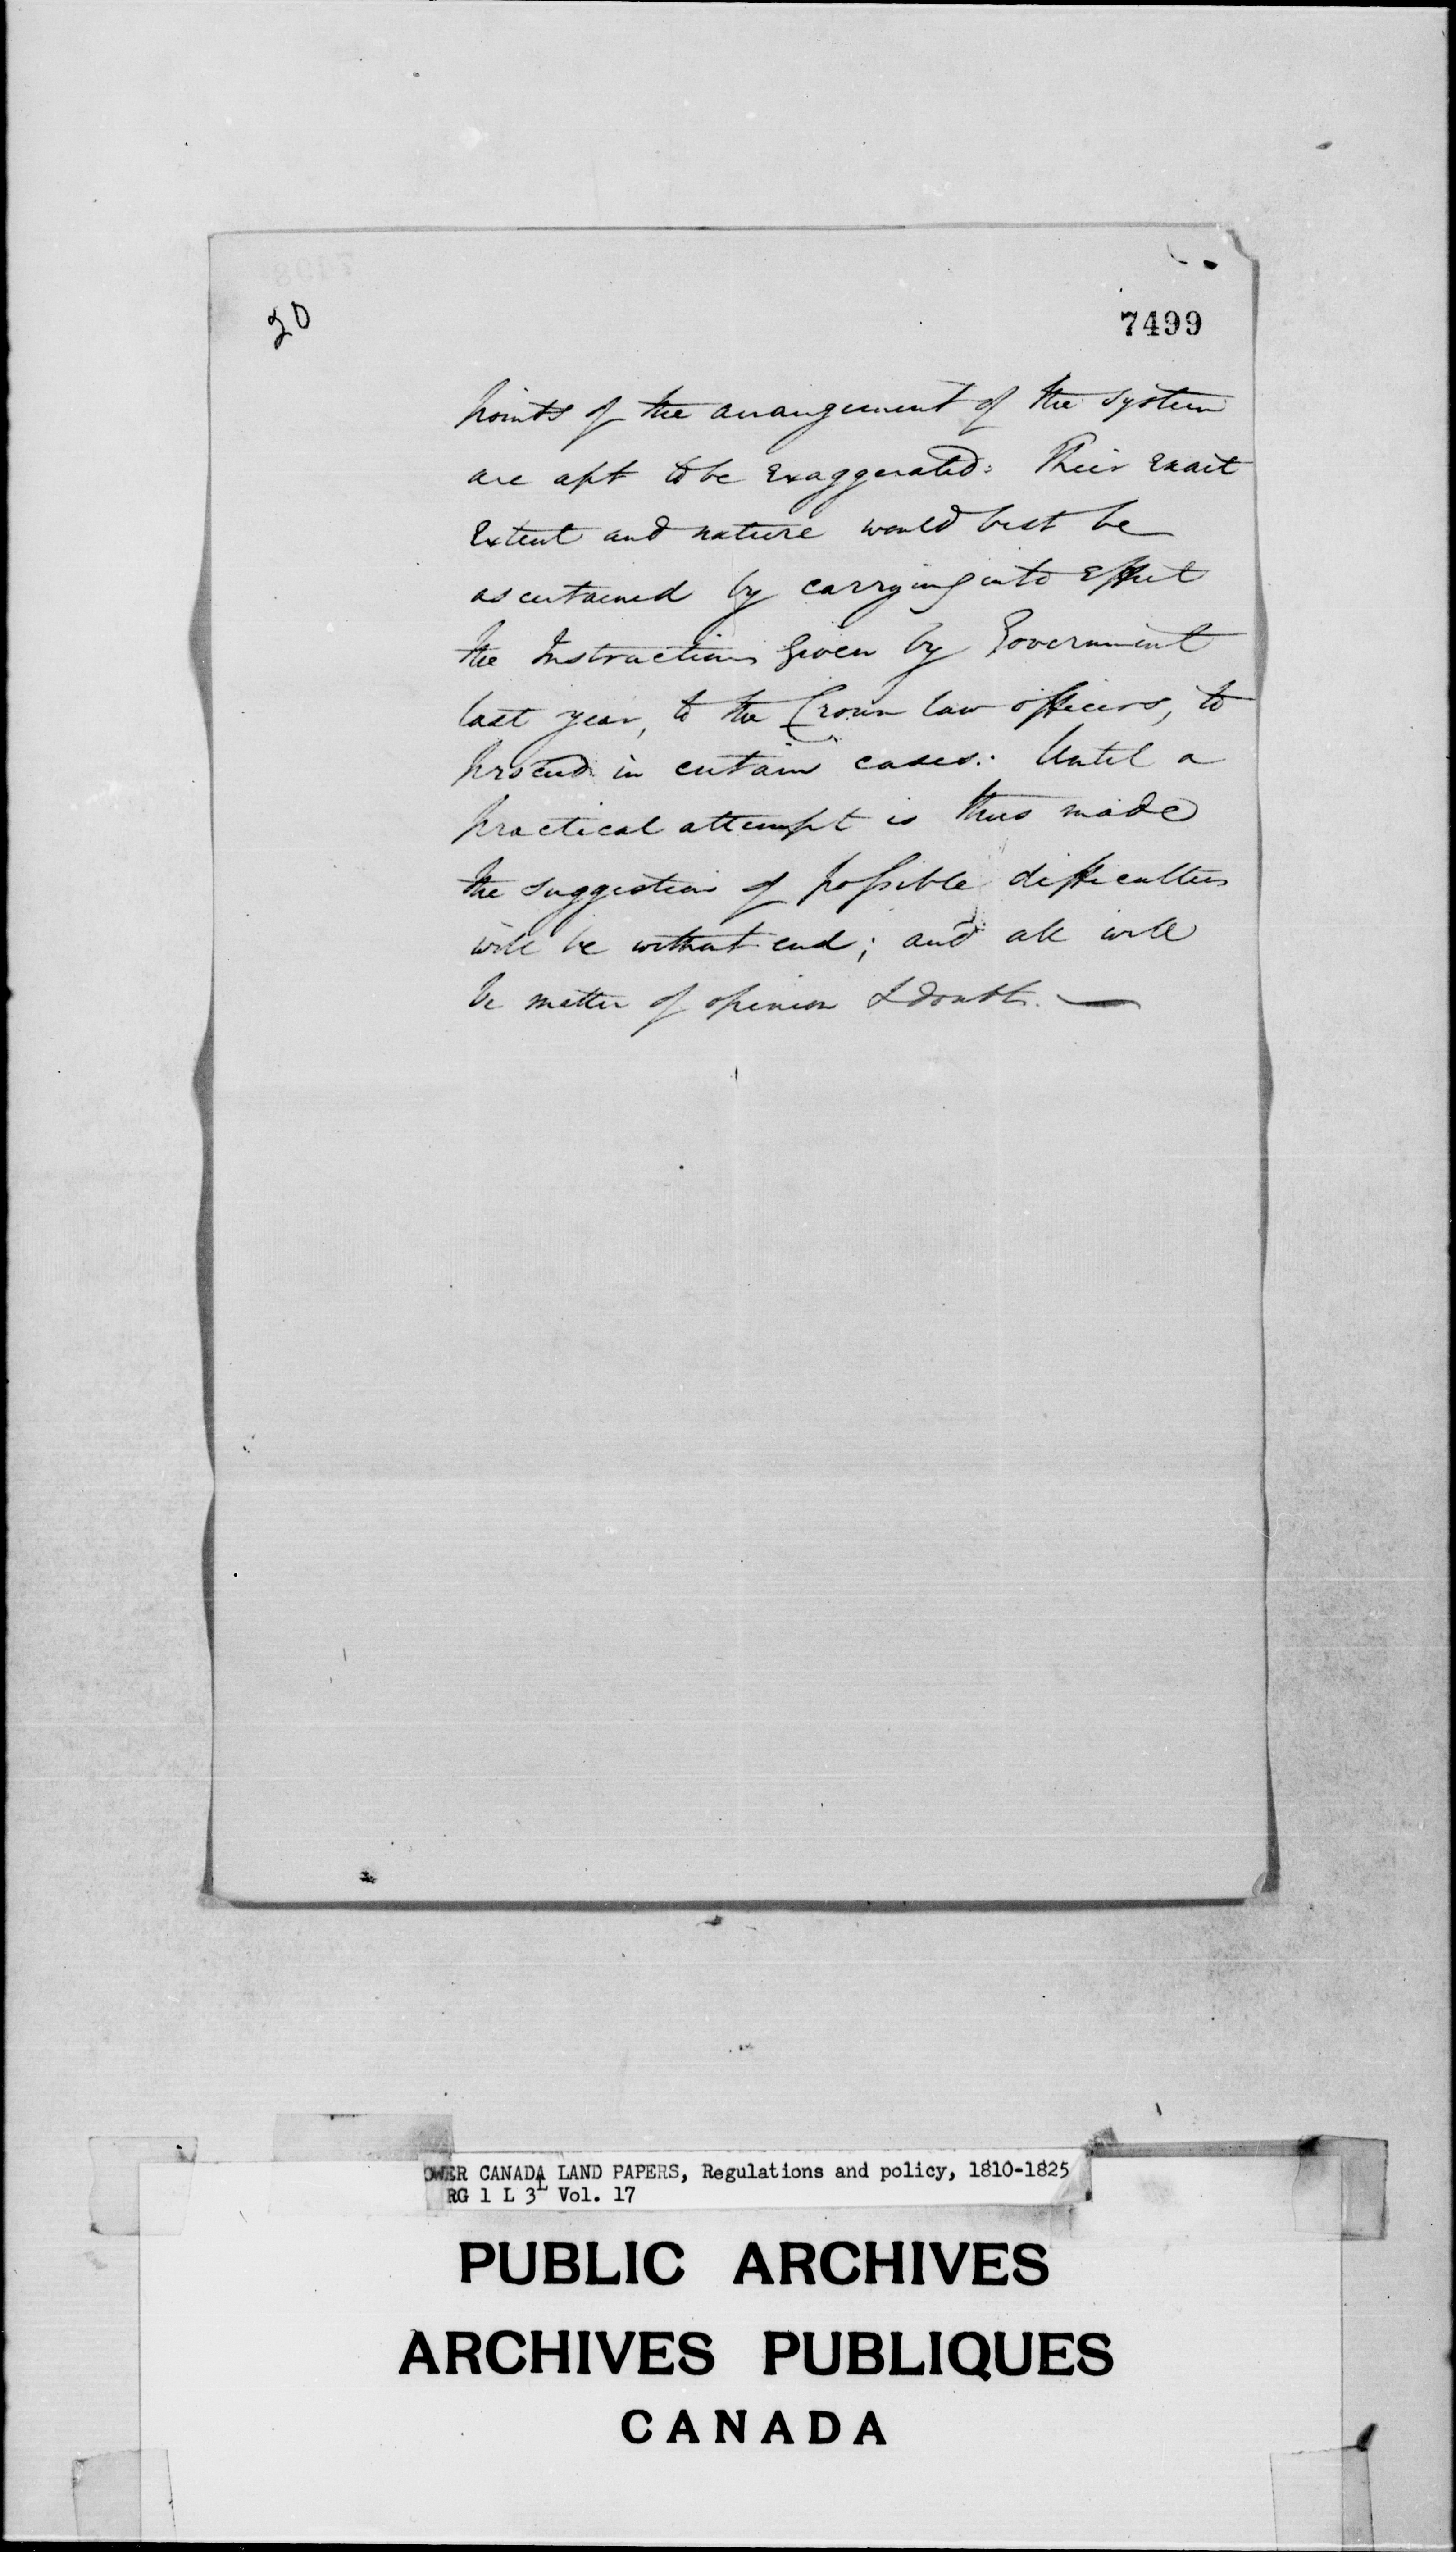 20
7499
points of the arrangement of the system
are apt to be exaggerated: Their exact
Extent and nature would best be
ascertained by carrying into effect
the Instructions given by Government
last year, to the Crown law officers, to
proceed in certain cases. Until a
practical attempt is thus made
the suggestion of possible difficulties
will be without end; and all will
be matter of opinion & doubt. —
OWER CANADA LAND PAPERS, Regulations and policy, 1810-1825
RG 1 L 3L Vol. 17
PUBLIC ARCHIVES
ARCHIVES PUBLIQUES
CANADA